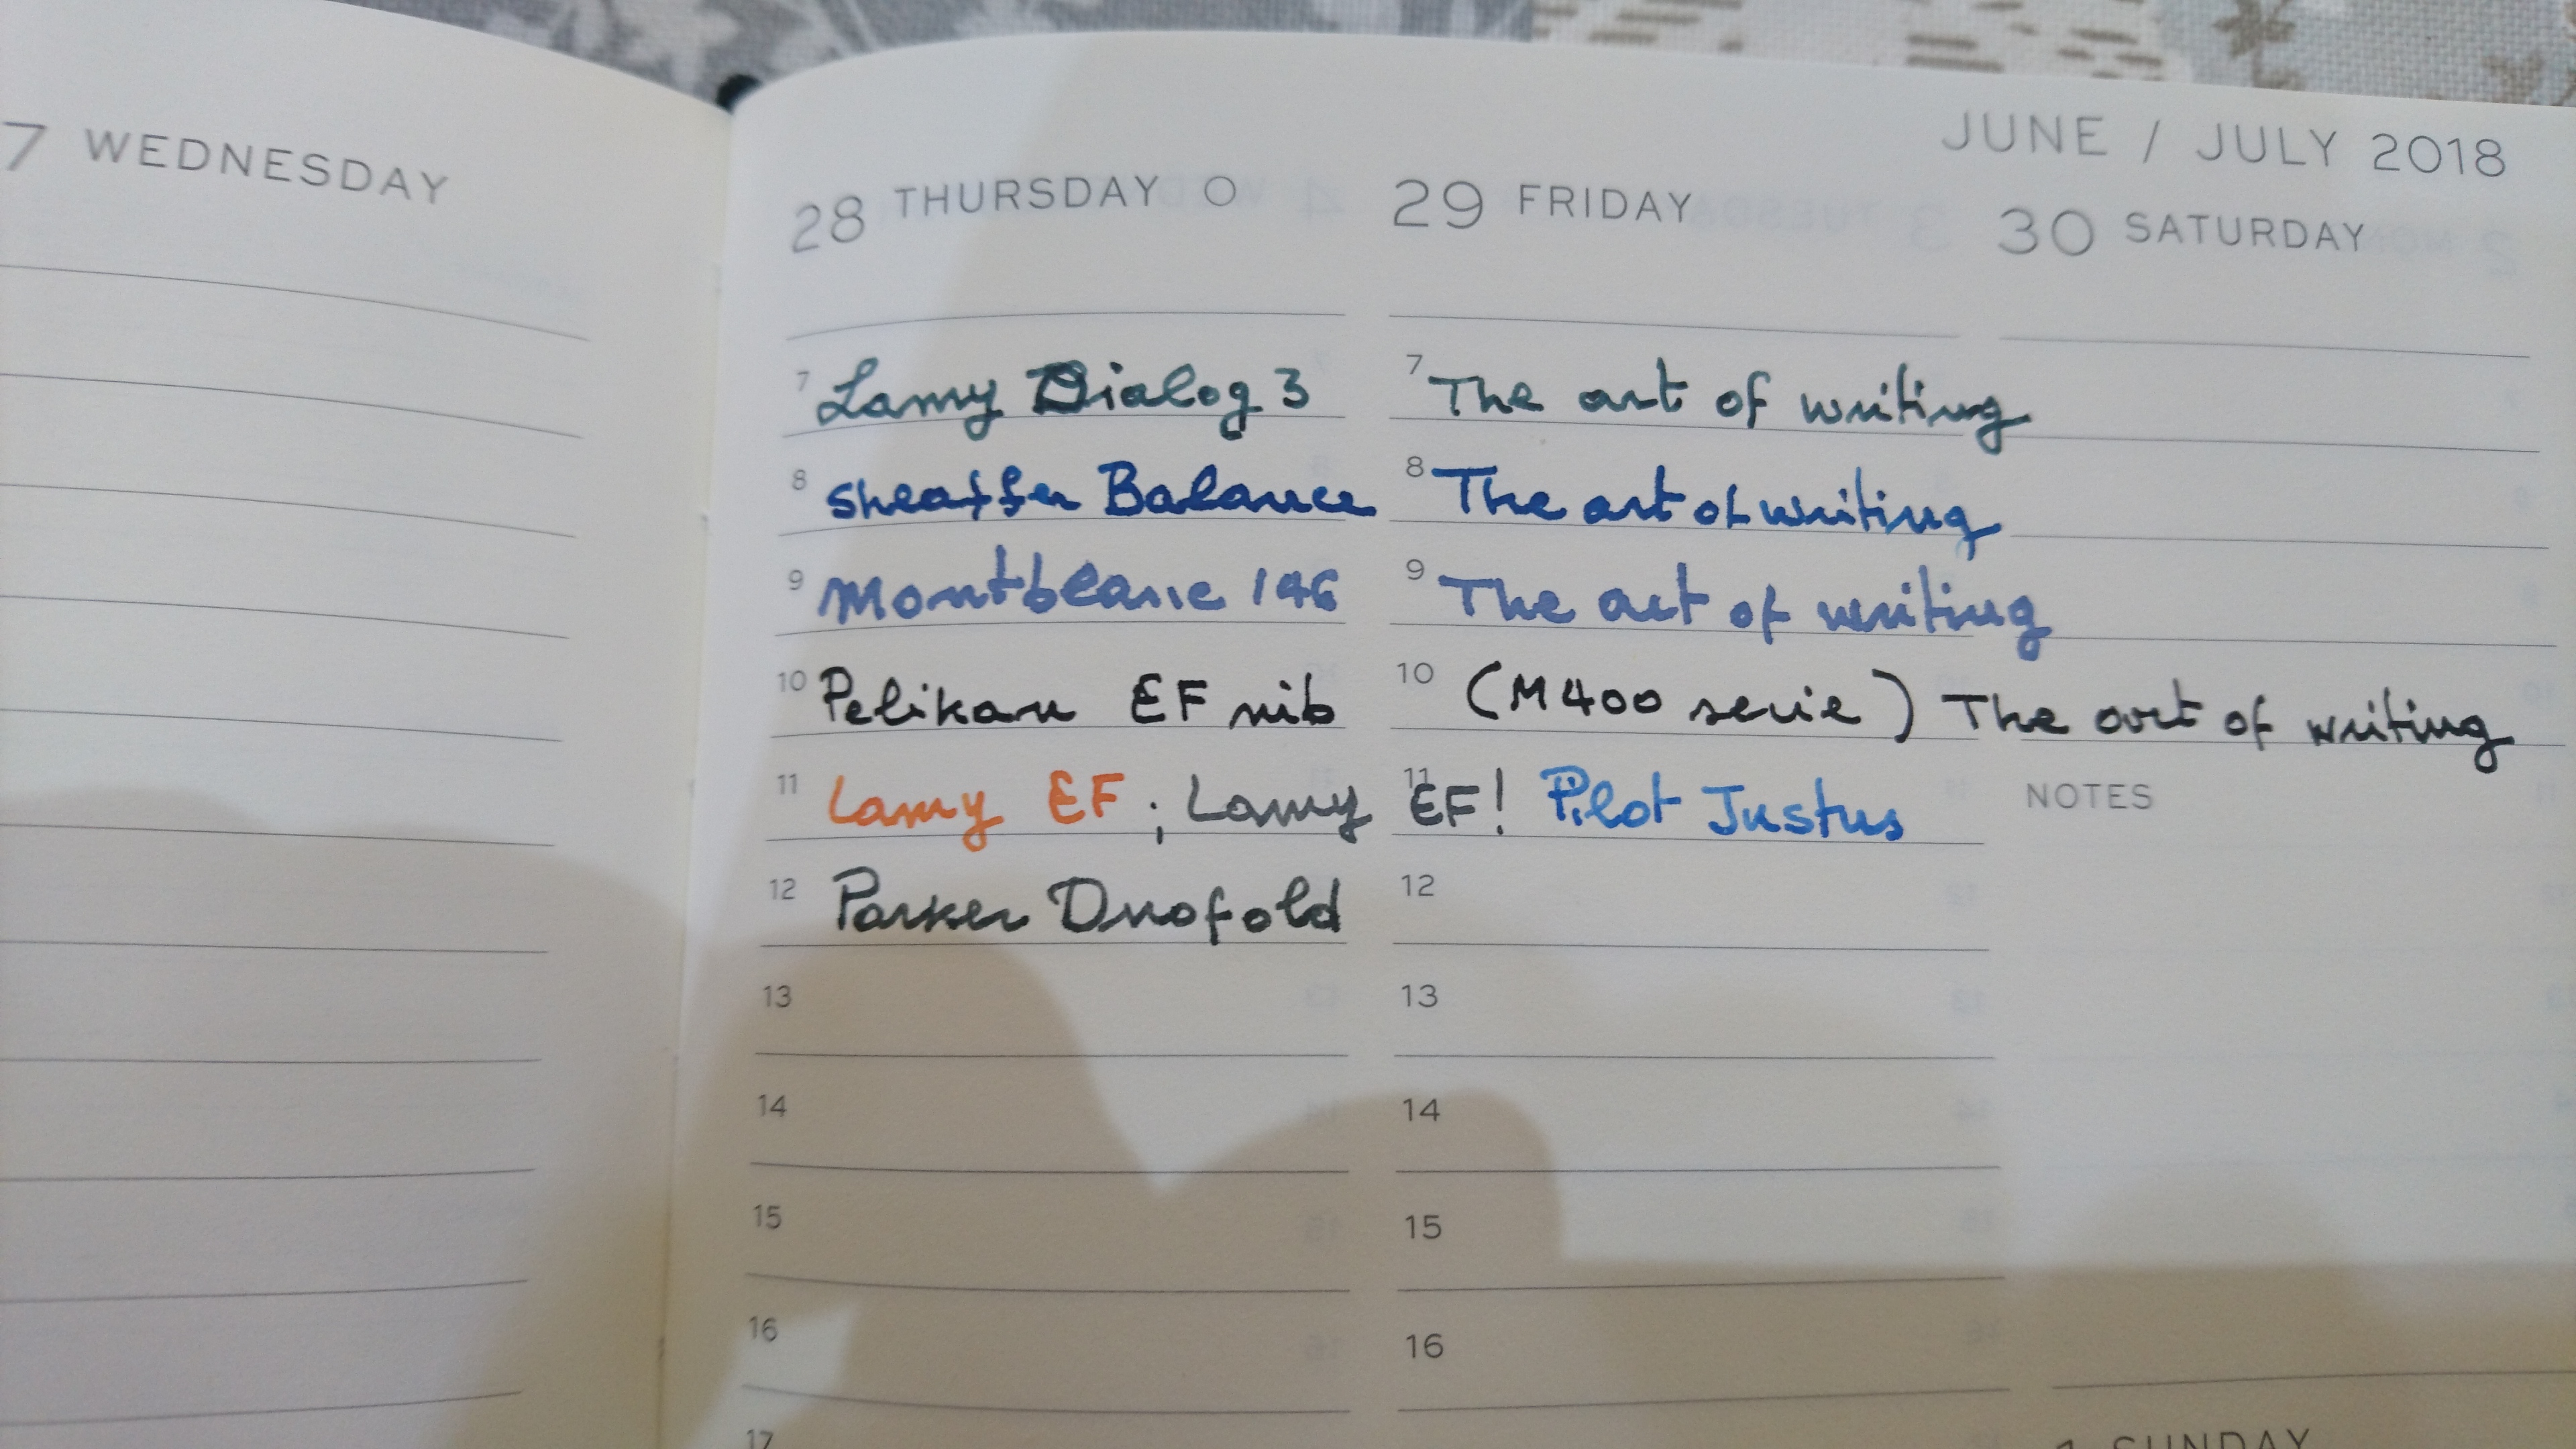 JUNE / JULY 2018
7 WEDNESDAY
28 THURSDAY 29 FRIDAY 30 SATURDAY
7 Lamy Dialog 3 7 The art of writing
8 Sheaffer Balance 8 The art of writing
9 Montblanc 146 9 The art of writing
10 Pelikan EF nib 10 (M400 serie) The art of writing
11 Lamy EF ; Lamy 11 EF! Pilot Justus NOTES
12 Parker Duofold 12
13 13
14 14
15 15
16 16
17
1 SUNDAY